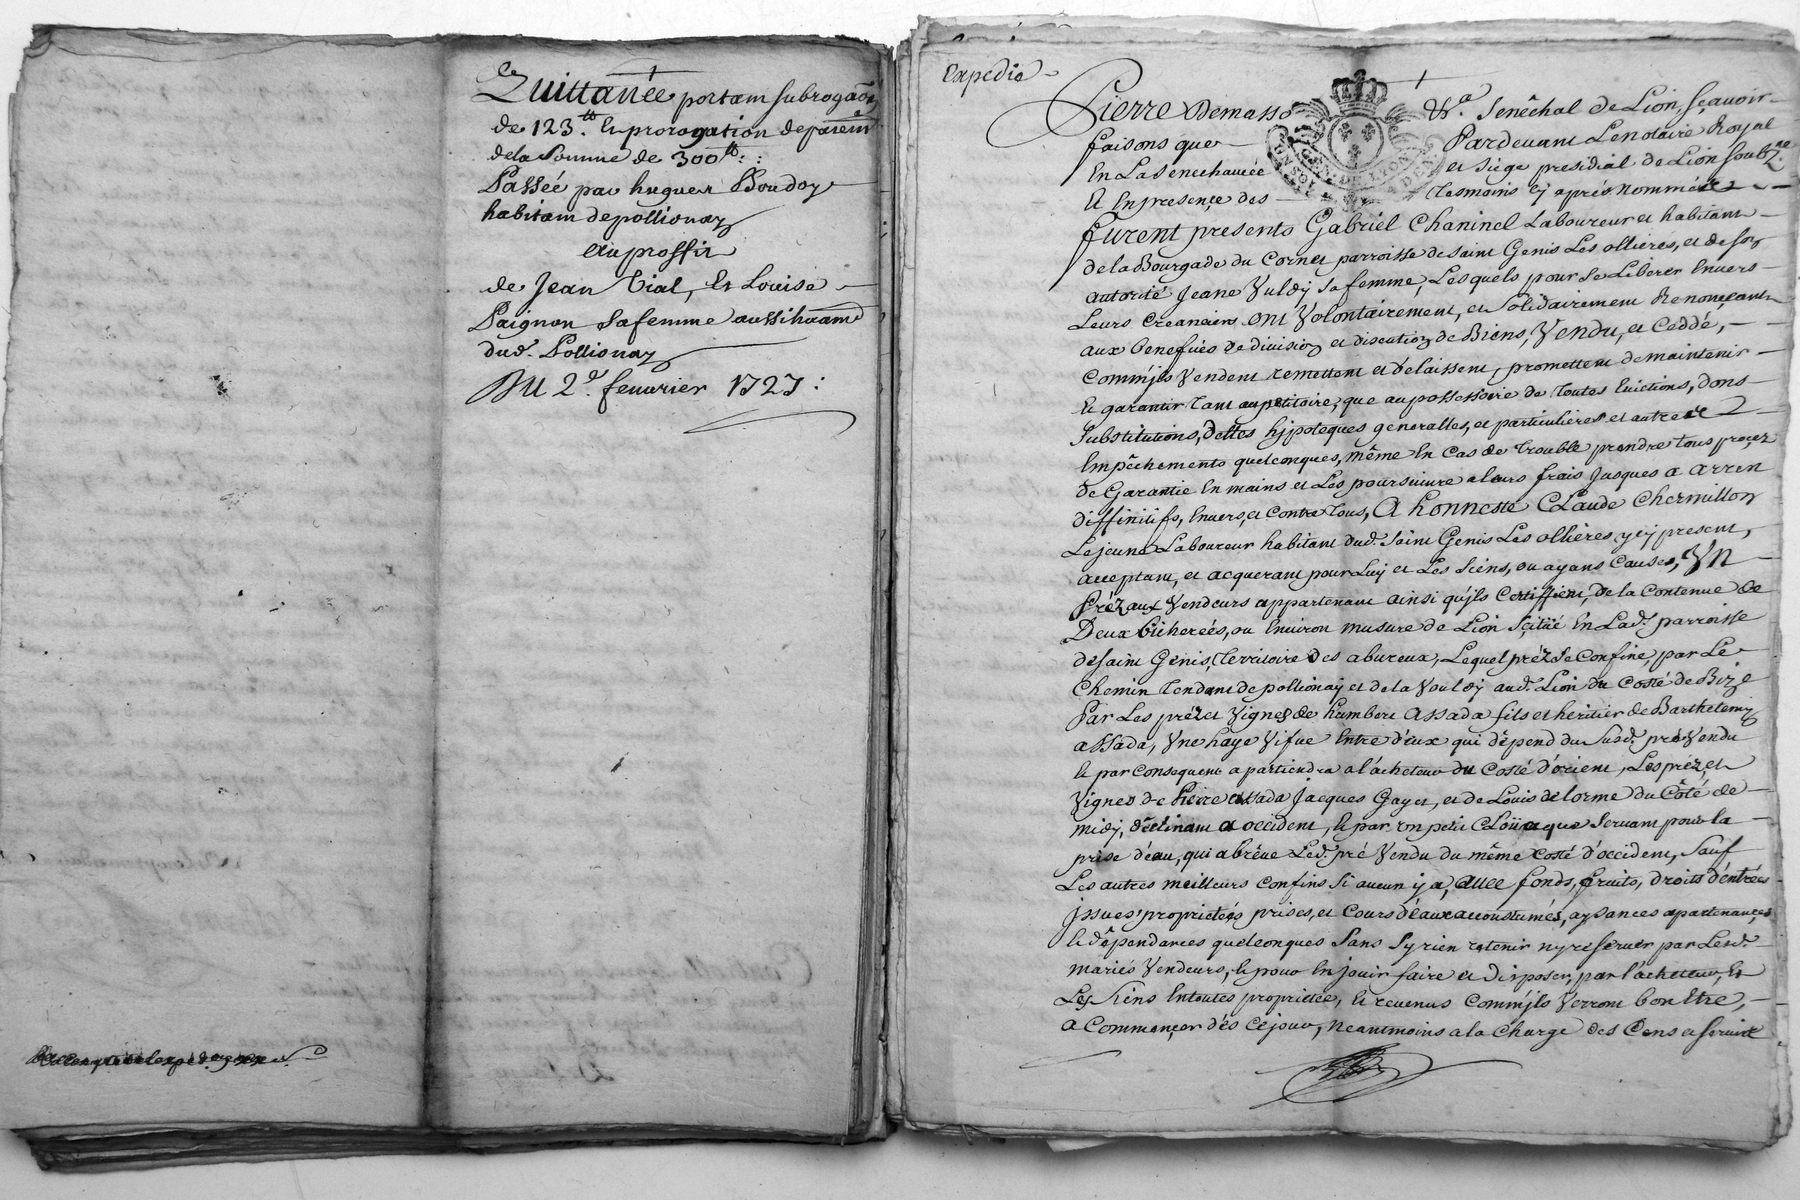 Quittance portant subrogaõn
de 123.ᵗᵗ Et prorogation de paiem
de la Somme de 300ᵗᵗ :
Passée par hugues Boudoy
habitant de pollionay
au proffit
de Jean Vial, Et Louise
Paignon sa femme aussi
dud. Pollionay
Du 2.ᵈ feuurier 1727 :
Expedié
Pierre Demasso &ᵃ. Senêchal de Lion, sçauoir
faisons que Pardeuant Le notaire Royal
En La Senechaucée et Siége presidial de Lion soubz.ⁿᵉ
Et En presençe des tesmoins cy aprés nommés
furent presents Gabriel Chaninel Laboureur et habitant
de la Bourgade du Cornet parroisse de saint Genis Les ollieres, et de son
autorité Jeane Vuldy sa femme, Lesquels pour se Liberer Enuers
Leurs Creanciers ont Volontairement, et Solidairement Renonçants
aux benefices de diuision et discution de Biens, Vendu, et Ceddé,
Comm'jls Vendent remettent et d'elaissent, promettent de maintenir
Et garantir tant au petitoire, que au possessoire de toutes Euictions, dons
Substitutions, dettes hjpoteques generalles, et particulieres et autres
Empêchements quelconques, même En Cas de trouble prendre tous proçez
de Garantie En mains et Les poursuiure a leurs frais Jusques a arren
diffinitifs, Enuers, et Contre tous, A honneste CLaude Chermillon
Le jeune Laboureur habitant dud. Saint Genis Les ollières ycy present,
acceptant, et acquerant pour Luy et Les Siens, ou ayans Causes, Vn
Préz aux Vendeurs appartenant ainsi qu'jls Certiffient, de la Contenue de
Deux bicherées, ou Enuiron musure de Lion Sçitüé En Lad. parroisse
de saint Genis, Territoire des abureux, Lequel préz Se Confine, par Le
Chemin tendant de pollionay et de la Vouldy aud. Lion du Costé de Bize
Par Les préz et Vignes de humbert Assada fils et héritier de Barthelemy
assada, Vne haye Vifue Entre d'eux qui dépend du Susd. pré Vendu
Et par Consequent apartiendra a l'acheteur du Costé d'orient, Les préz, et
Vignes de Pierre assada Jacques Gayet, et de Louis delorme du Côté de
midy, déclinant a occident, Et par vn petit seruant pour la
prise d'eau, qui abrêue Led. pré Vendu du même Costé d'occident, Sauf
Les autres meilleurs Confins Si aucun y a, auec fonds, fruits, droits d'éntrées
jssues, proprietés prises, et Cours d'eaux accoustumés, aysances apartenances
Et dépendances quelconques Sans Sy rien retenir ny reseruer par Lesd.
mariés Vendeurs, Et pour En jouir faire et disposer, par l'acheteur, Et
Les Siens En toutes proprietée, Et reuenus Comm'jls Verront bon Etre,
a Commençer dés Cejour, neantmoins a la Charge des Cens et Seruice